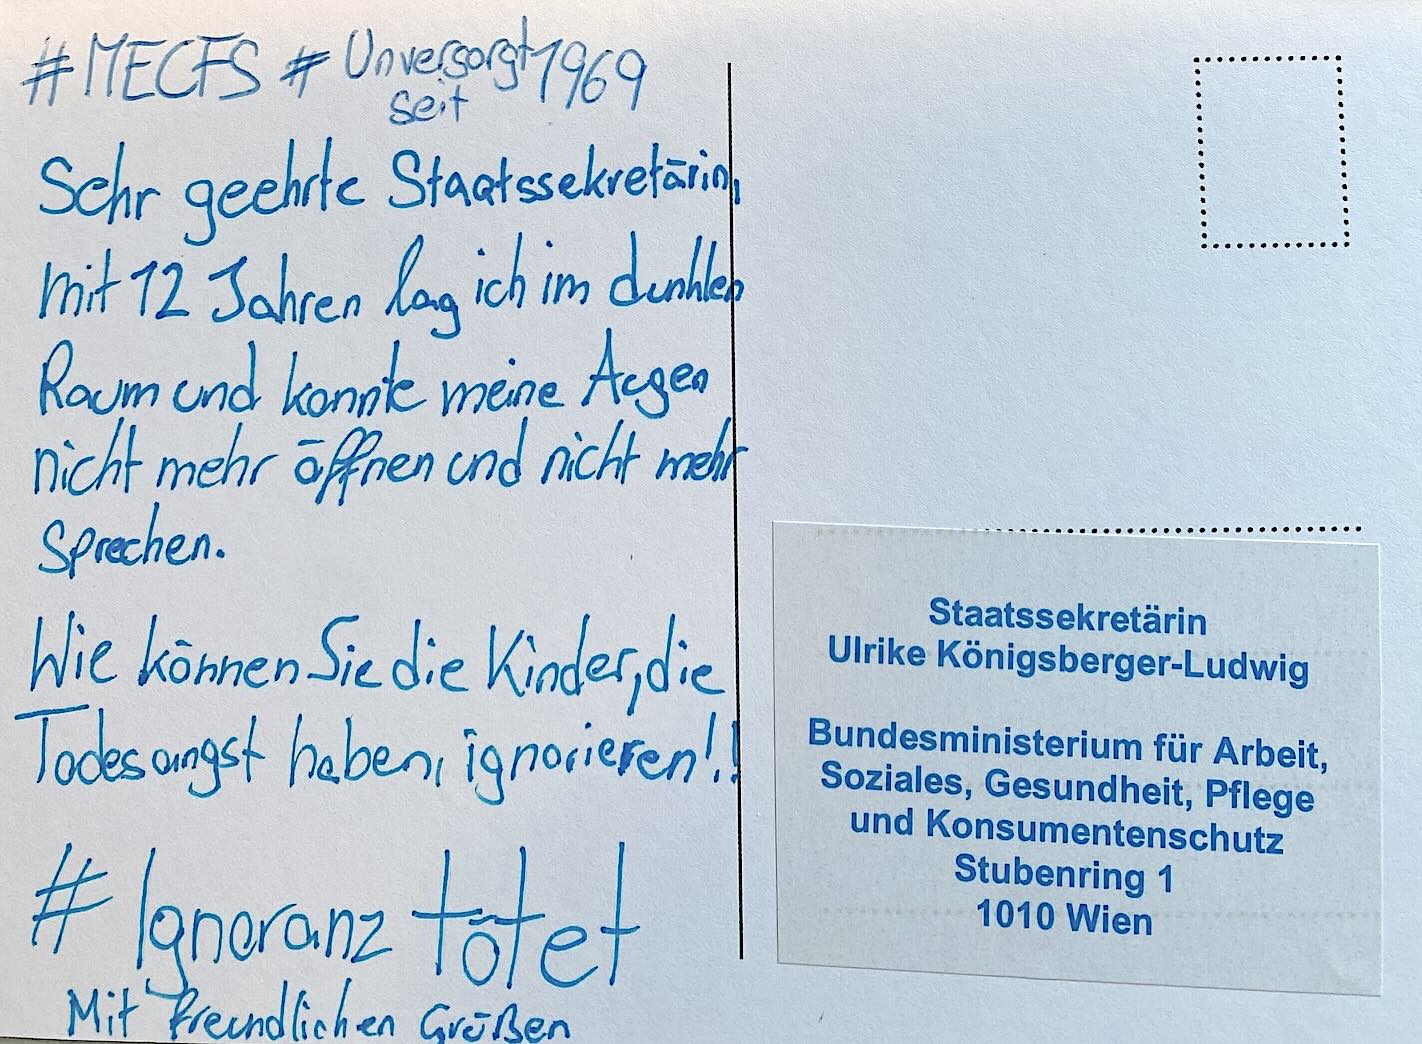 #MECFS #Unversorgt 1969
seit
Sehr geehrte Staatssekretärin,
mit 12 Jahren lag ich im dunklen
Raum und konnte meine Augen
nicht mehr öffnen und nicht mehr
sprechen.
Wie können Sie die Kinder, die
Todesangst haben, ignorieren!!
#Ignoranz tötet
Mit freundlichen Grüßen
Staatssekretärin
Ulrike Königsberger-Ludwig
Bundesministerium für Arbeit,
Soziales, Gesundheit, Pflege
und Konsumentenschutz
Stubenring 1
1010 Wien